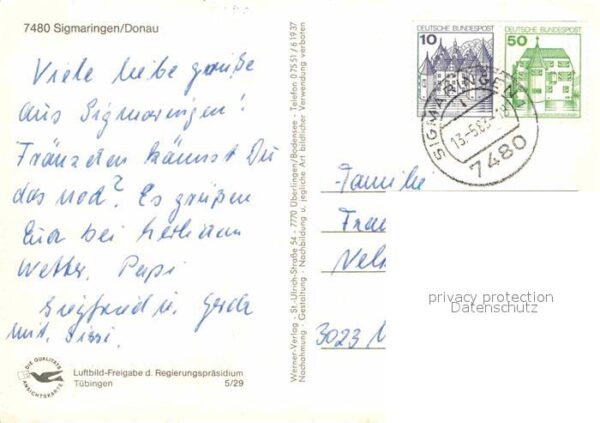 7480 Sigmaringen/Donau
Viele liebe grüße
aus Sigmaringen!
Fränzchen kännst Du
das noch? Es grüßen
Euch bei herlichem
Wetter. Papi
Siegfried u. Gerda
mit. Sissi.
DIE QUALITÄTS
ANSICHTSKARTE
Luftbild-Freigabe d. Regierungspräsidium
Tübingen 5/29
Werner-Verlag - St.-Ulrich-Straße 54 - 7770 Überlingen/Bodensee - Telefon 07551/61937
Nachahmung - Gestaltung - Nachbildung u. jegliche Art bildlicher Verwendung verboten
DEUTSCHE BUNDESPOST
10
DEUTSCHE BUNDESPOST
50
SIGMARINGEN
7480
Familie
Fran
3023
privacy protection
Datenschutz